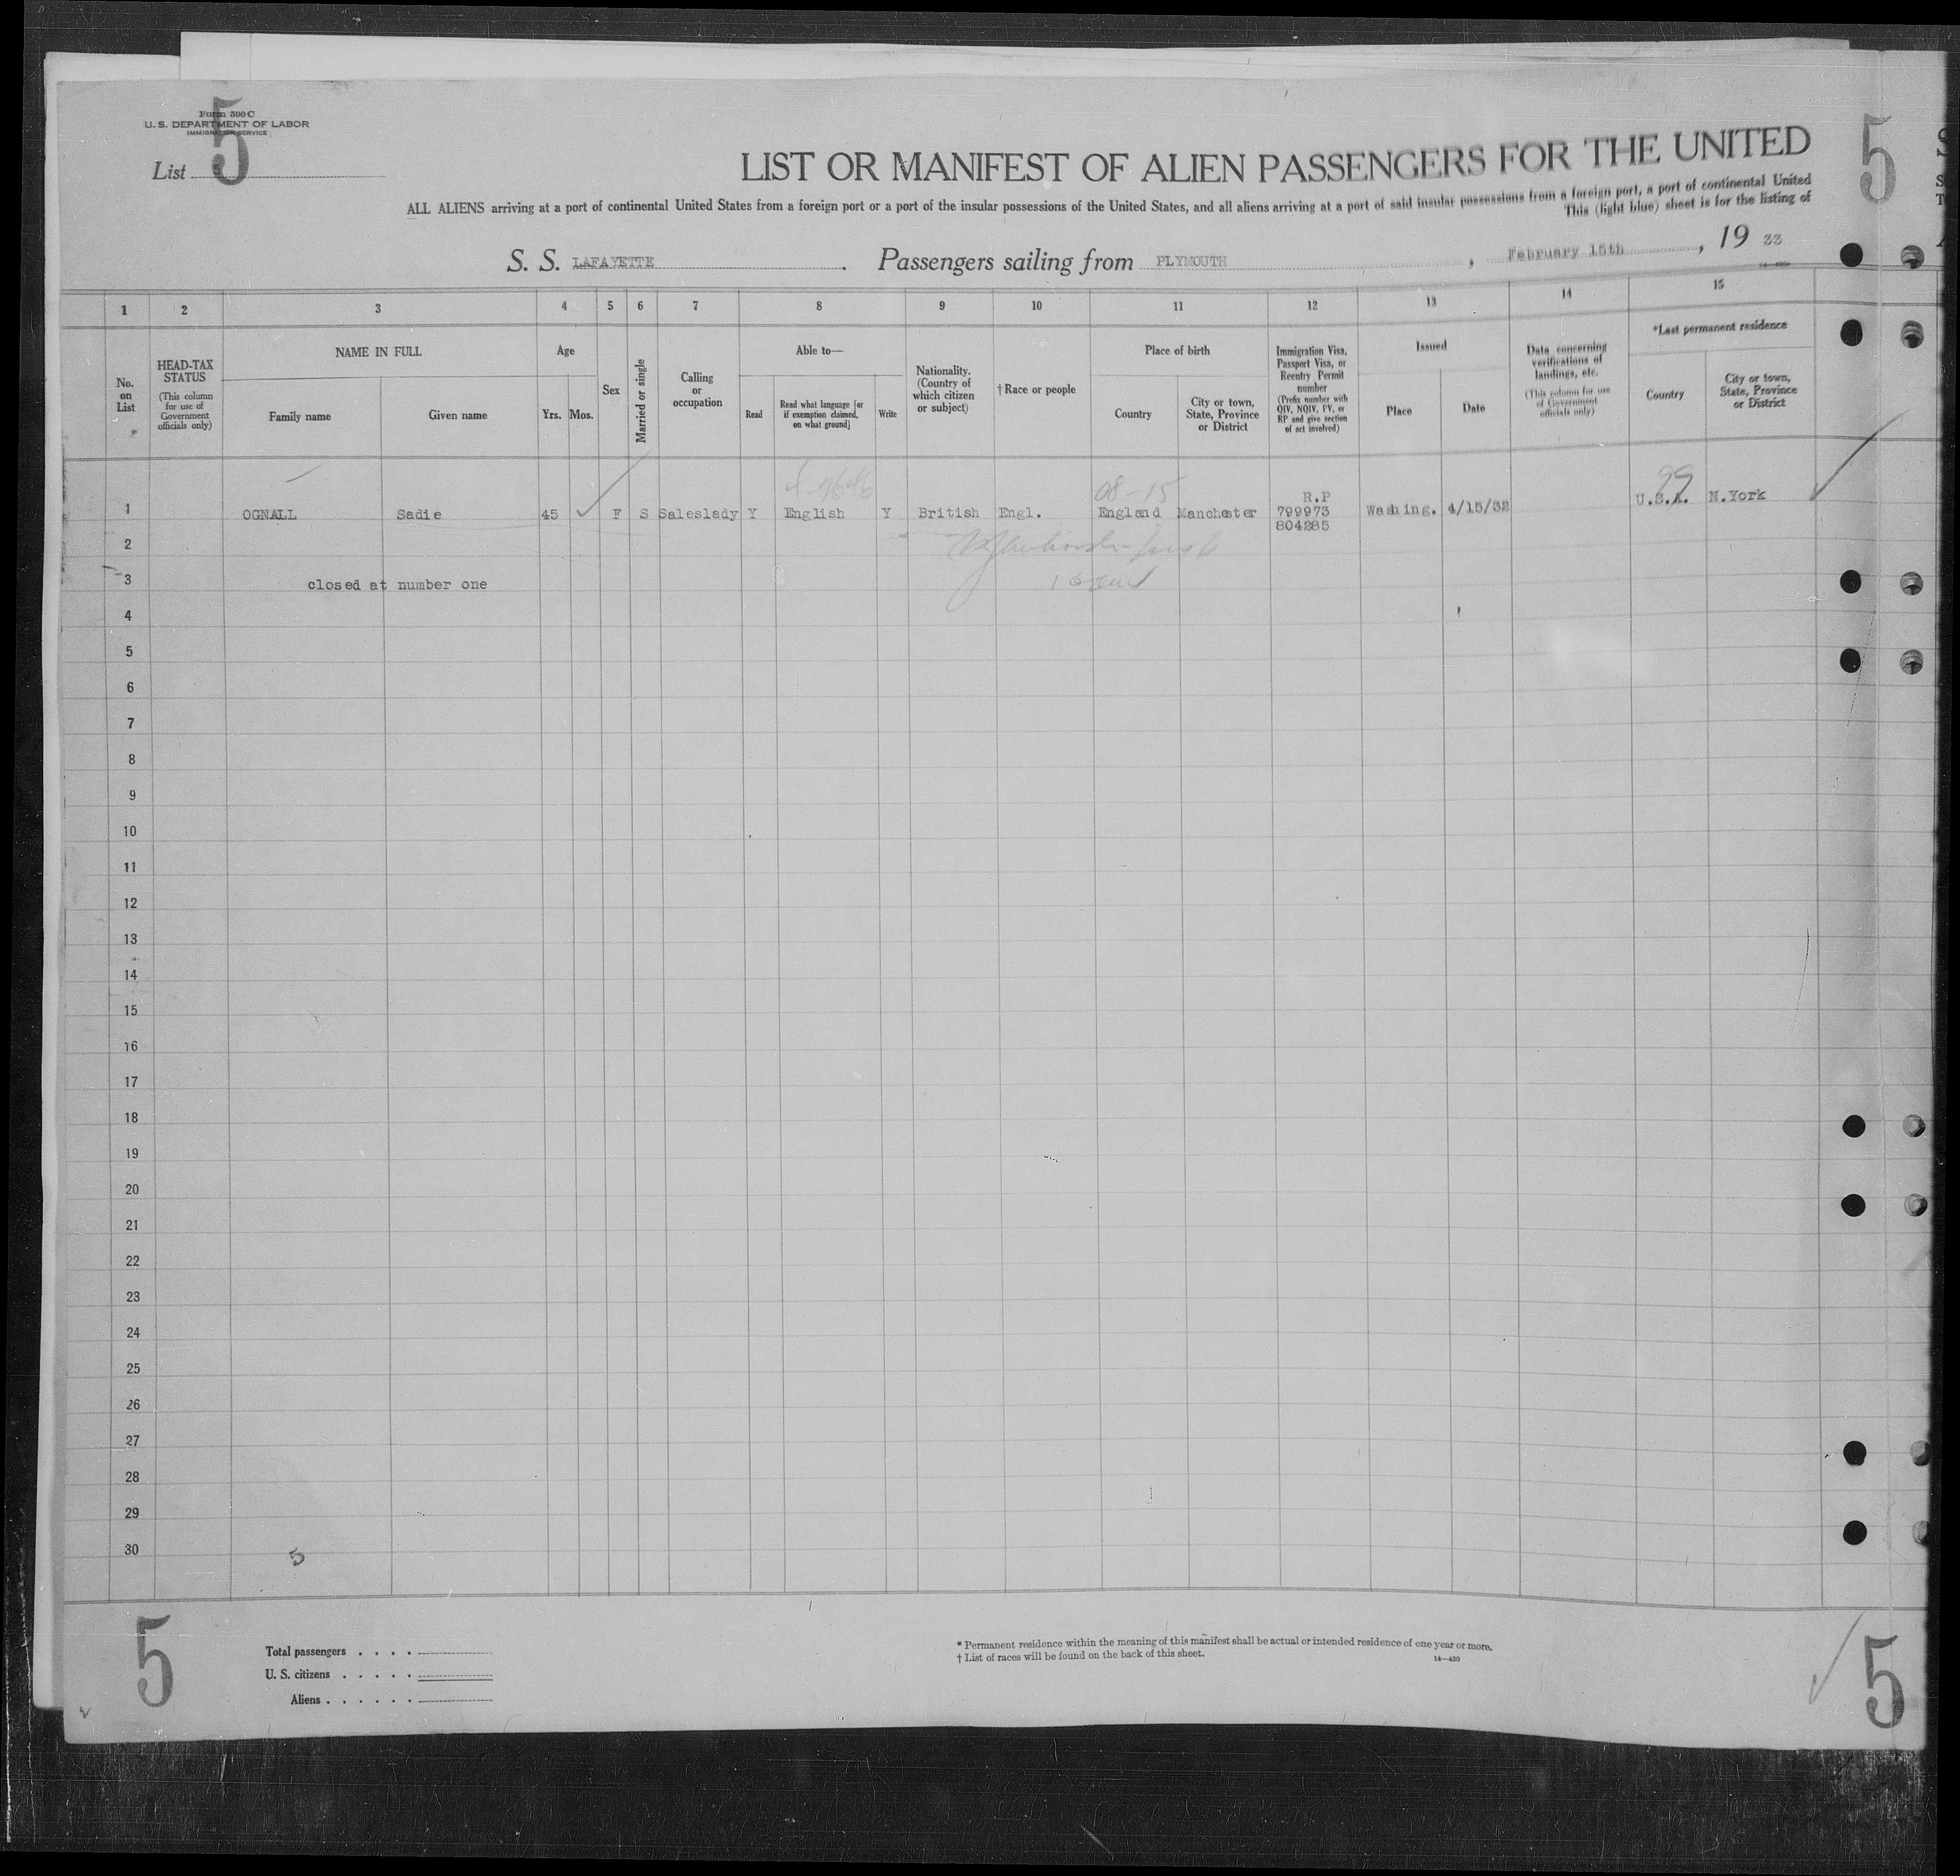 Form 500 C
U. S. DEPARTMENT OF LABOR
IMMIGRATION SERVICE
List 5
5
LIST OR MANIFEST OF ALIEN PASSENGERS FOR THE UNITED
ALL ALIENS arriving at a port of continental United States from a foreign port or a port of the insular possessions of the United States, and all aliens arriving at a port of said insular possessions from a foreign port, a port of continental United
This (light blue) sheet is for the listing of
S. S. LAFAYETTE. Passengers sailing from PLYMOUTH, February 15th, 19 33
1 2 3 4 5 6 7 8 9 10 11 12 13 14 15
No. on List
HEAD-TAX STATUS (This column for use of Government officials only)
NAME IN FULL
Family name
Given name
Age
Yrs. Mos.
Sex
Married or single
Calling or occupation
Able to—
Read
Read what language [or if exemption claimed, on what ground]
Write
Nationality. (Country of which citizen or subject)
†Race or people
Place of birth
Country
City or town, State, Province or District
Immigration Visa, Passport Visa, or Reentry Permit number (Prefix number with QIV, NQIV, PV, or RP and give section of act involved)
Issued
Place
Date
Data concerning verifications of landings, etc. (This column for use of Government officials only)
*Last permanent residence
Country
City or town, State, Province or District
08-15
99
R.P
1 OGNALL Sadie 45 F S Saleslady Y English Y British Engl. England Manchester 799973 Washing. 4/15/32 U.S.A. N.York
804285
2
3 closed at number one
4
5
6
7
8
9
10
11
12
13
14
15
16
17
18
19
20
21
22
23
24
25
26
27
28
29
30
5
5
Total passengers . . . .
U. S. citizens . . . . .
Aliens . . . . . .
* Permanent residence within the meaning of this manifest shall be actual or intended residence of one year or more.
† List of races will be found on the back of this sheet.
14—430
5